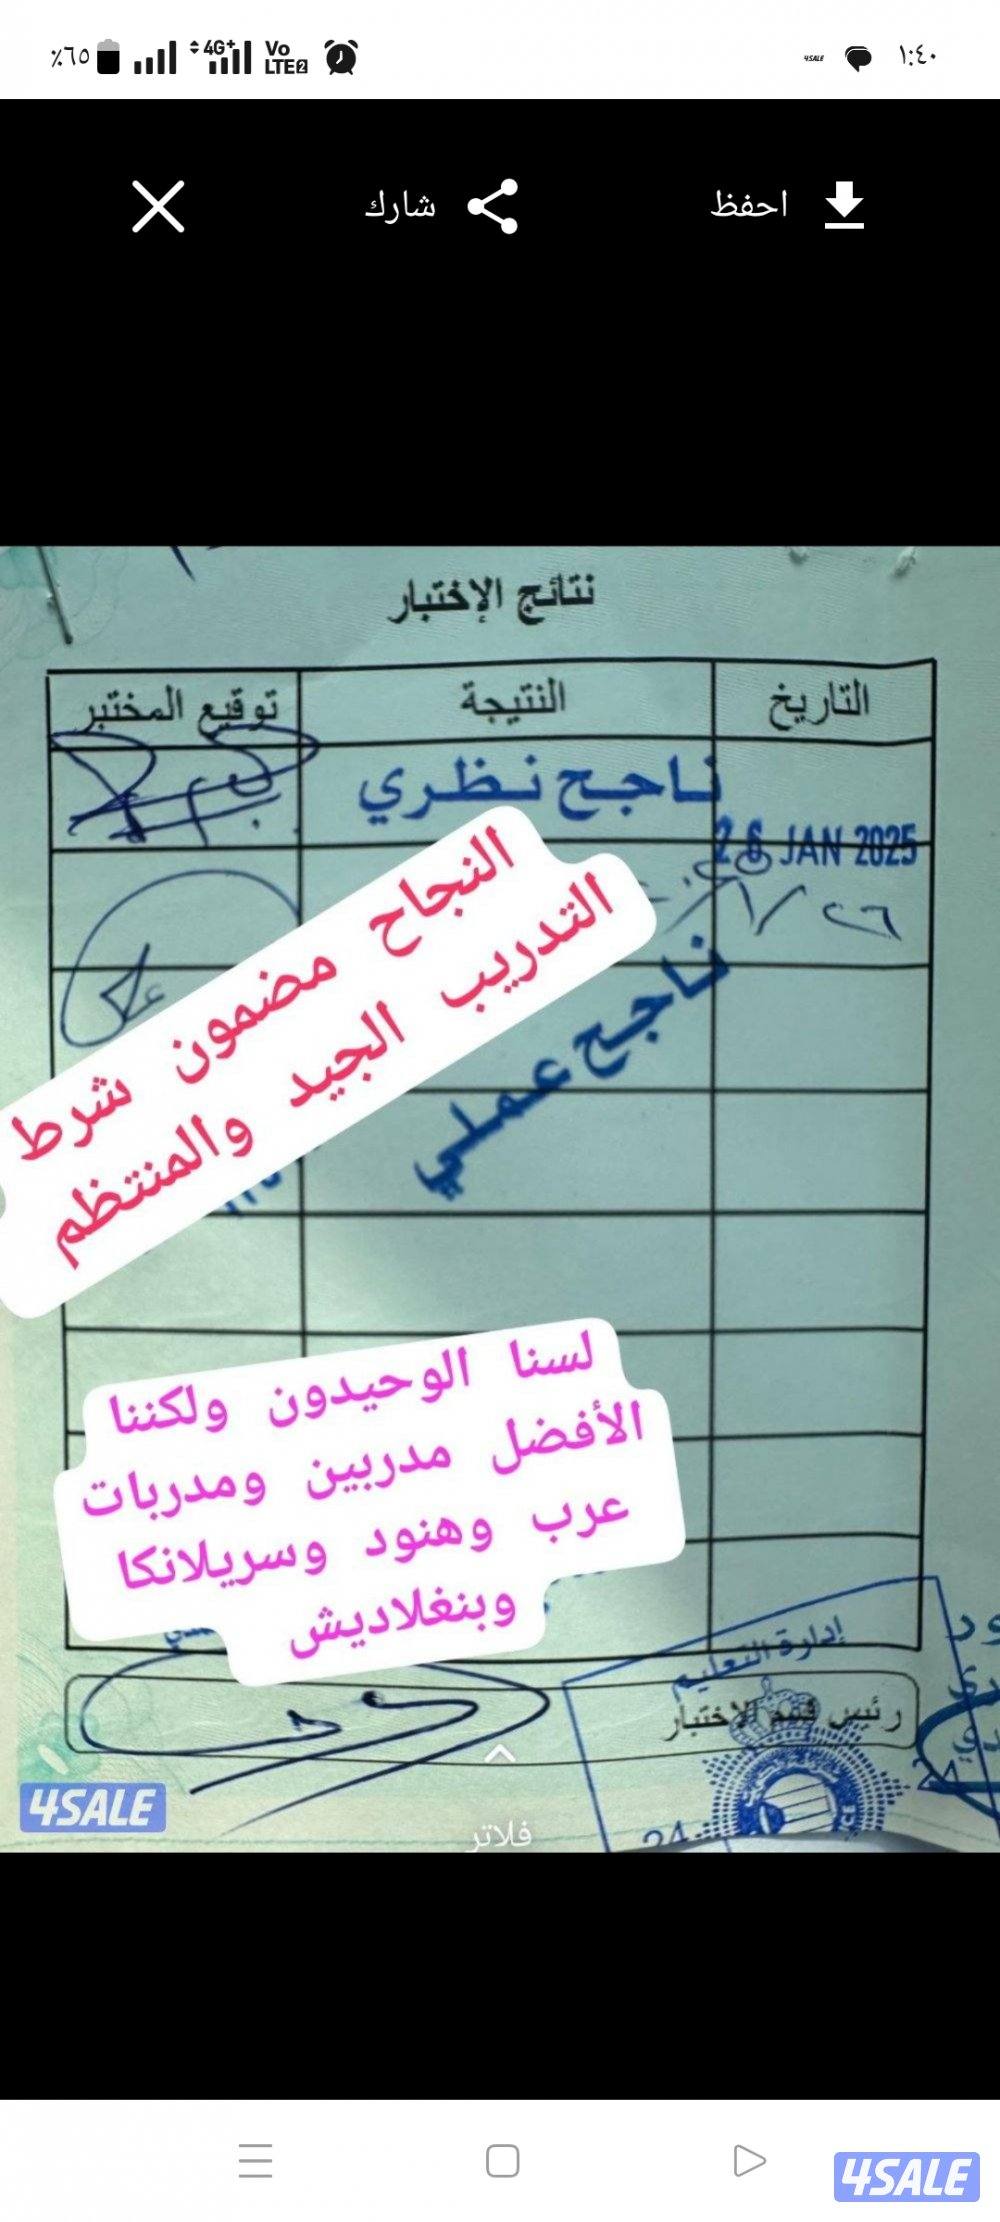 ٪٦٥
4G+
Vo
LTE2
4SALE
١:٤٠
شارك
احفظ
نتائج الإختبار
التاريخ
النتيجة
توقيع المختبر
ناجح نظري
26 JAN 2025
ناجح عملي
النجاح مضمون شرط
التدريب الجيد والمنتظم
لسنا الوحيدون ولكننا
الأفضل مدربين ومدربات
عرب وهنود وسريلانكا
وبنغلاديش
إدارة التعليم
رئيس قسم الاختبار
4SALE
فلاتر
4SALE